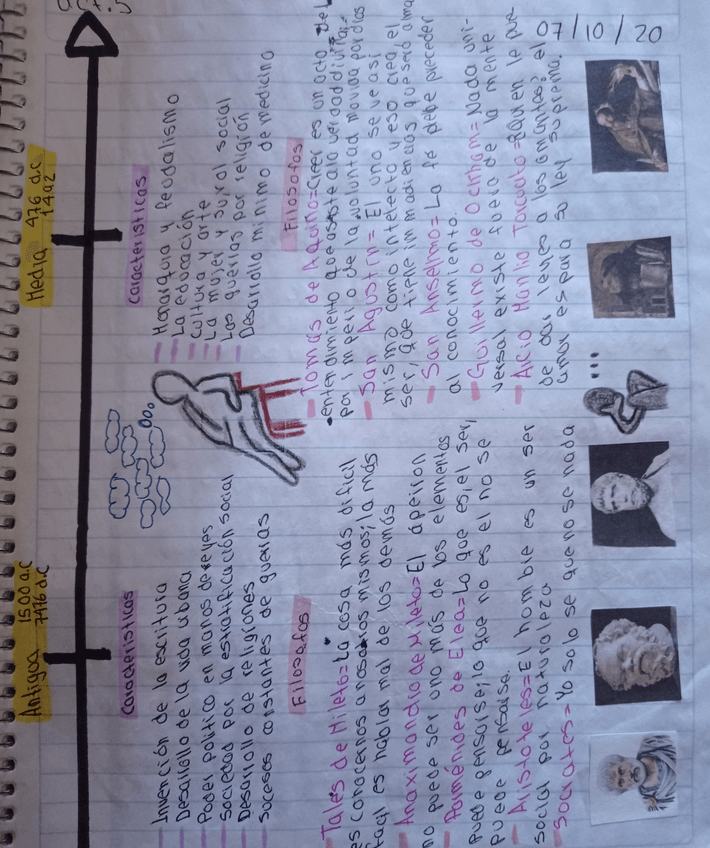 Act. 5
07/10/20
Antigua 1500 a.C
7476 d.C
Características
- Invención de la escritura
- Desarrollo de la vida urbana
- Poder político en manos de reyes
- Sociedad por la estratificación social
- Desarrollo de religiones
- Sucesos constantes de guerras
Filosofos
- Tales de Mileto= La cosa más difícil
es conocernos a nosotros mismos; la más
facil es hablar mal de los demás
- Anaximandro de Mileto= El ápeiron
no puede ser uno más de los elementos
- Parménides de Elea= Lo que es, el ser,
puede pensarse; lo que no es el no se
puede pensarse.
- Aristoteles= El hombre es un ser
social por naturaleza
- Socrates= Yo solo se que no se nada
Media 476 d.c
1492
Características
- Monarquia y feudalismo
- La educación
- Cultura y arte
- La mujer y su rol social
- Las guerras por religión
- Desarrollo mínimo de medicina
Filosofos
- Tomás de Aquino= Creer es un acto del
entendimiento que asiste a la verdad divina
por imperio de la voluntad movida por dios
- San Agustin= El uno se ve así
mismo como intelecto y eso crea el
ser, que tiene inmadiencias que será alma
- San Anselmo= La fe debe preceder
al conocimiento.
- Guillermo de Ockham= Nada uni-
versal existe fuera de la mente
- Ancio Manlio Torcuato= Quien le pue
de dar leyes a los amantes; el
amar es para su ley suprema.